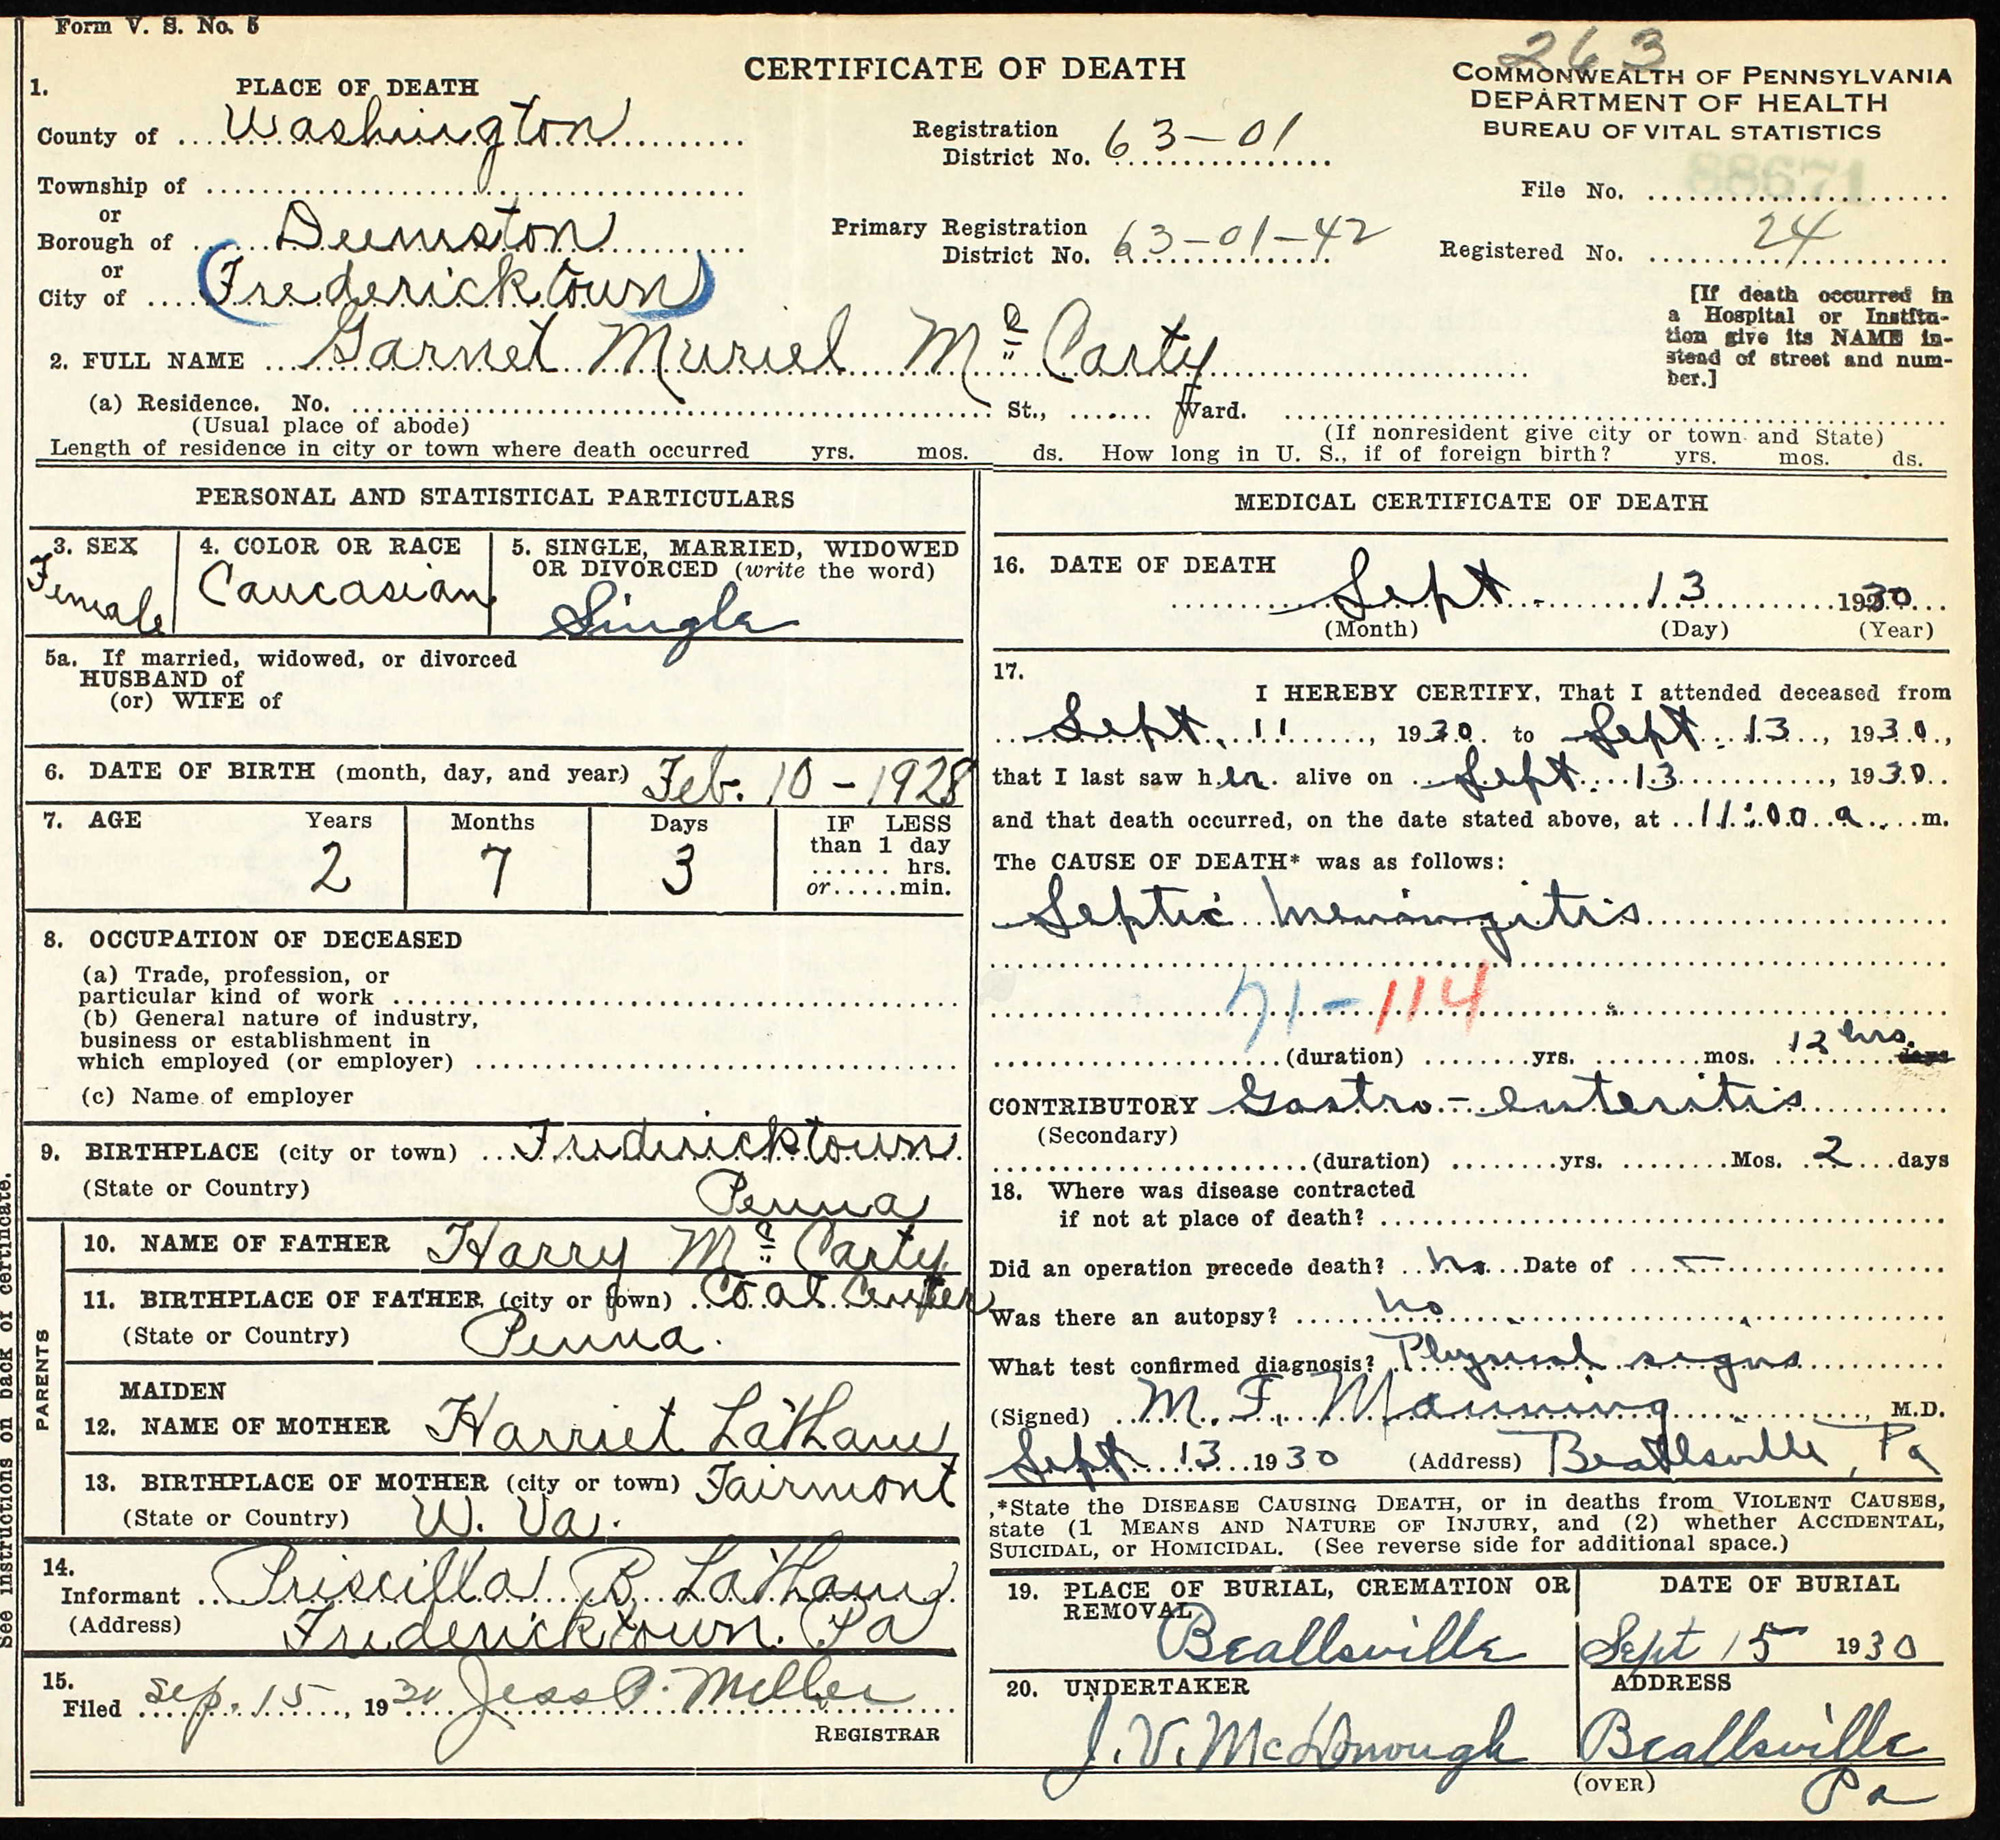 Form V. S. No. 5
263
CERTIFICATE OF DEATH
COMMONWEALTH OF PENNSYLVANIA
DEPARTMENT OF HEALTH
BUREAU OF VITAL STATISTICS
1. PLACE OF DEATH
County of Washington
Registration District No. 63-01
88671
File No.
Township of
or
Borough of Deemston
Primary Registration District No. 63-01-42
Registered No. 24
or
City of (Fredericktown)
[If death occurred in a Hospital or Institution give its NAME instead of street and number.]
2. FULL NAME Garnet Muriel Mc Carty
(a) Residence. No. St., Ward.
(Usual place of abode) (If nonresident give city or town and State)
Length of residence in city or town where death occurred yrs. mos. ds. How long in U. S., if of foreign birth? yrs. mos. ds.
PERSONAL AND STATISTICAL PARTICULARS
3. SEX
Female
4. COLOR OR RACE
Caucasian
5. SINGLE, MARRIED, WIDOWED
OR DIVORCED (write the word)
Single
5a. If married, widowed, or divorced
HUSBAND of
(or) WIFE of
6. DATE OF BIRTH (month, day, and year) Feb. 10 - 1928
7. AGE Years Months Days IF LESS
than 1 day
hrs.
or min.
2 7 3
8. OCCUPATION OF DECEASED
(a) Trade, profession, or
particular kind of work
(b) General nature of industry,
business or establishment in
which employed (or employer)
(c) Name of employer
9. BIRTHPLACE (city or town) Fredericktown
(State or Country) Penna
PARENTS
10. NAME OF FATHER Harry Mc Carty
11. BIRTHPLACE OF FATHER (city or town) Coal Center
(State or Country) Penna.
MAIDEN
12. NAME OF MOTHER Harriet LaTham
13. BIRTHPLACE OF MOTHER (city or town) Fairmont
(State or Country) W. Va.
14.
Informant Priscilla B. LaTham
(Address) Fredericktown. Pa
15.
Filed Sep. 15, 1930 Jess P. Miller
REGISTRAR
See instructions on back of certificate.
MEDICAL CERTIFICATE OF DEATH
16. DATE OF DEATH
Sept. 13 1930
(Month) (Day) (Year)
17.
I HEREBY CERTIFY, That I attended deceased from
Sept. 11, 1930 to Sept. 13, 1930,
that I last saw her alive on Sept. 13, 1930
and that death occurred, on the date stated above, at 11:00 a. m.
The CAUSE OF DEATH* was as follows:
Septic Meningitis
71-114
(duration) yrs. mos. 12 hrs. days
CONTRIBUTORY Gastro-enteritis
(Secondary)
(duration) yrs. Mos. 2 days
18. Where was disease contracted
if not at place of death?
Did an operation precede death? No Date of —
Was there an autopsy? no
What test confirmed diagnosis? Physical signs
(Signed) M. F. Manning, M.D.
Sept 13 1930 (Address) Beallsville, Pa
*State the DISEASE CAUSING DEATH, or in deaths from VIOLENT CAUSES,
state (1 MEANS AND NATURE OF INJURY, and (2) whether ACCIDENTAL,
SUICIDAL, or HOMICIDAL. (See reverse side for additional space.)
19. PLACE OF BURIAL, CREMATION OR
REMOVAL
Beallsville
DATE OF BURIAL
Sept 15 1930
20. UNDERTAKER
J. V. McDonough
ADDRESS
Beallsville
Pa
(OVER)